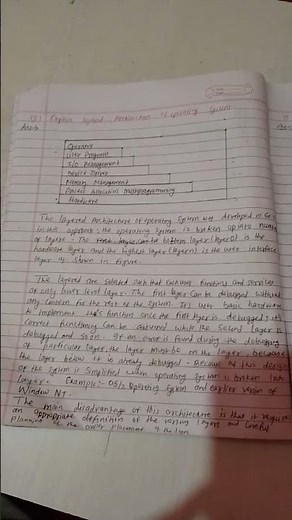 Explain layered Architecture of operating System
Ans:-
Operators
User Programs
I/O Management
Device Driver
Memory Management
Process Allocation Multiprogramming
Hardware
The layered Architecture of operating System was developed in
in this approach, the operating system is broken up into number
of layers. The bottom layer (layer 0) is the
hardware layer and the highest layer (layer n) is the user interface
layer as shown in figure.
The layered are selected such that each functions and services
of only lower level layer. The first layer can be debugged without
any concern for the rest of the system. It uses basic hardware
to implement this function once the first layer is debugged, its
correct functioning can be assumed while the second layer is
debugged and so on. If an error is found during the debugging
of particular layer, the layer must be on the layer, because
the layer below it is already debugged. Because of this design
of the system is simplified when operating system is broken into
layer. Example:- OS/2 operating system and earlier version of
Window NT.
The main disadvantage of this architecture is that it requires
an appropriate definition of the various layers and careful
planning of the proper placement of the layer